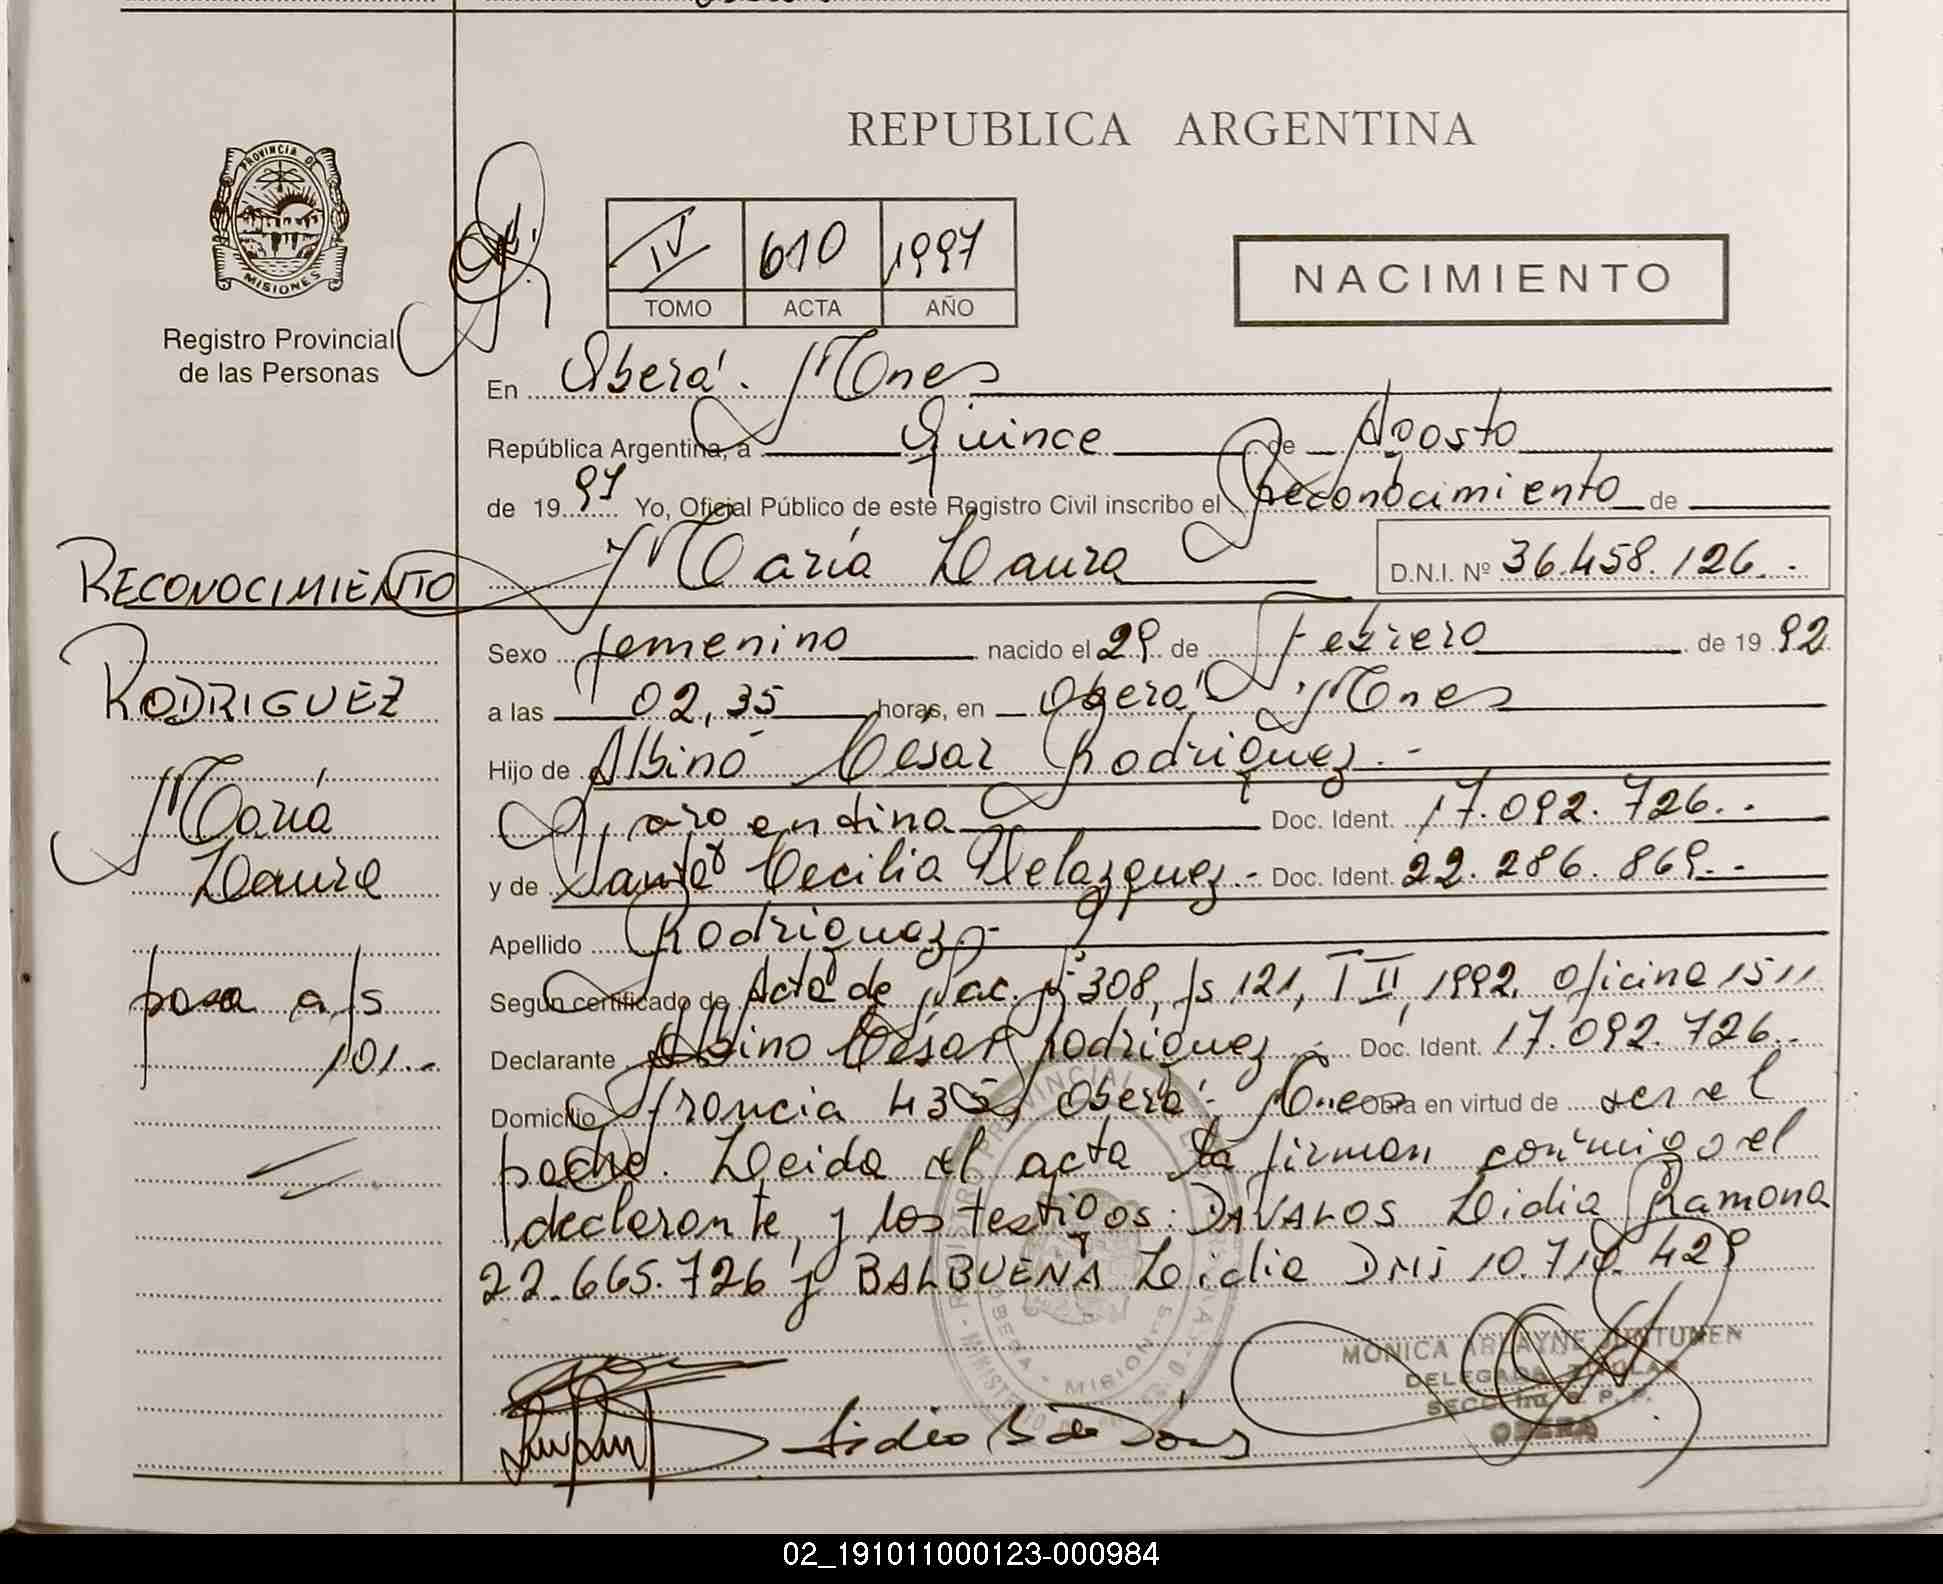 REPUBLICA ARGENTINA
PROVINCIA DE
MISIONES
Registro Provincial
de las Personas
IV 610 1997
TOMO ACTA AÑO
NACIMIENTO
En Oberá. Mnes
República Argentina, a Quince de Agosto
de 1997 Yo, Oficial Público de este Registro Civil inscribo el Reconocimiento de
María Laura D.N.I. Nº 36.458.126.-
RECONOCIMIENTO
RODRIGUEZ
María
Laura
pasa a fs
101.-
Sexo femenino nacido el 29 de Febrero de 1992
a las 02,35 horas, en Oberá Mnes
Hijo de Albino César Rodriguez.-
Argentina Doc. Ident. 17.092.726.-
y de Santa Cecilia Velazquez.- Doc. Ident. 22.286.869.-
Apellido Rodriguez.-
Según certificado de Acta de Nac. Nº 308, fs 121, T II, 1992, oficina 1511
Declarante Albino César Rodriguez Doc. Ident. 17.092.726.-
Domicilio Francia 435 Oberá Mnes Obra en virtud de ser el
padre. Leida el acta la firman conmigo el
declarante, y los testigos: DAVALOS Lidia Ramona
22.665.726 y BALBUENA Lidia DNI 10.710.429
REGISTRO PROVINCIAL DE LAS PERSONAS
OBERA - MISIONES
MONICA ARLAYNE JUNTUNEN
DELEGADA TITULAR
OBERA
02_191011000123-000984